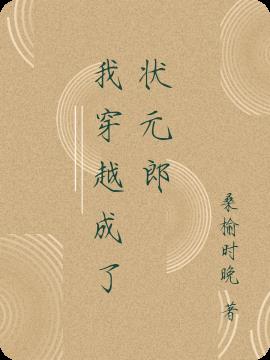 我穿越成了
状元郎
桑榆时晚 著